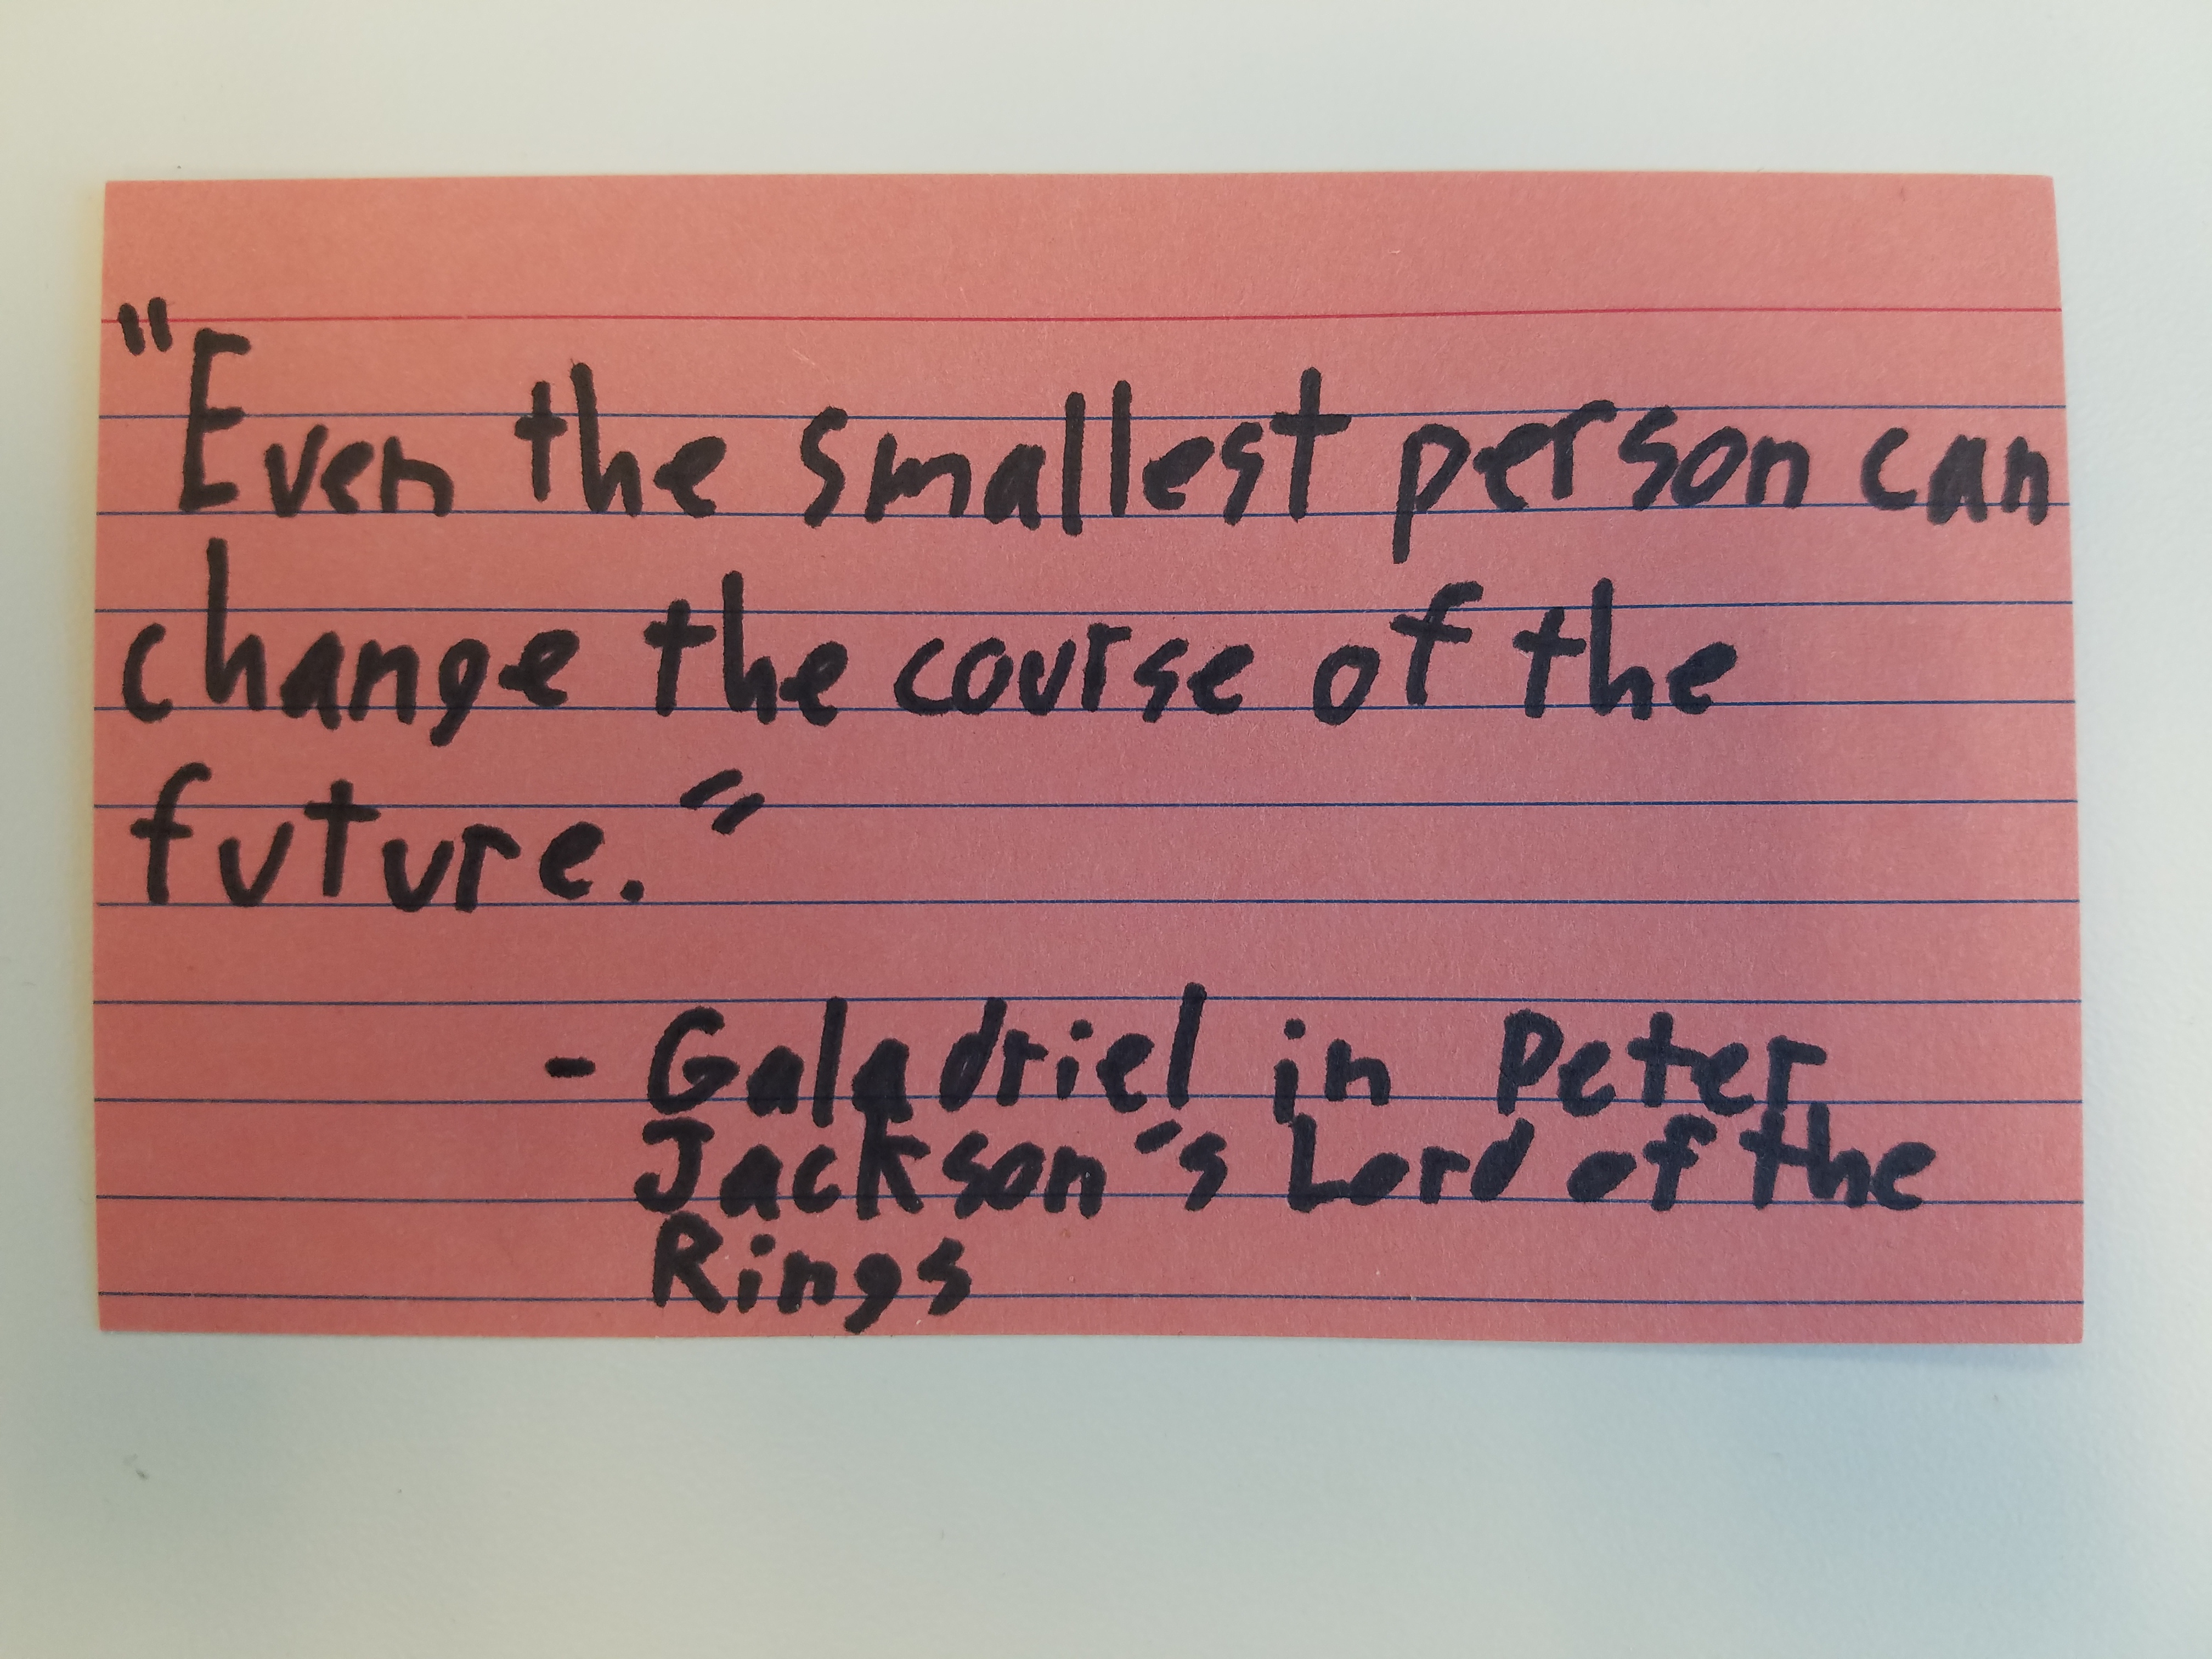 "Even the smallest person can
change the course of the
future."
- Galadriel in Peter
Jackson's Lord of the
Rings